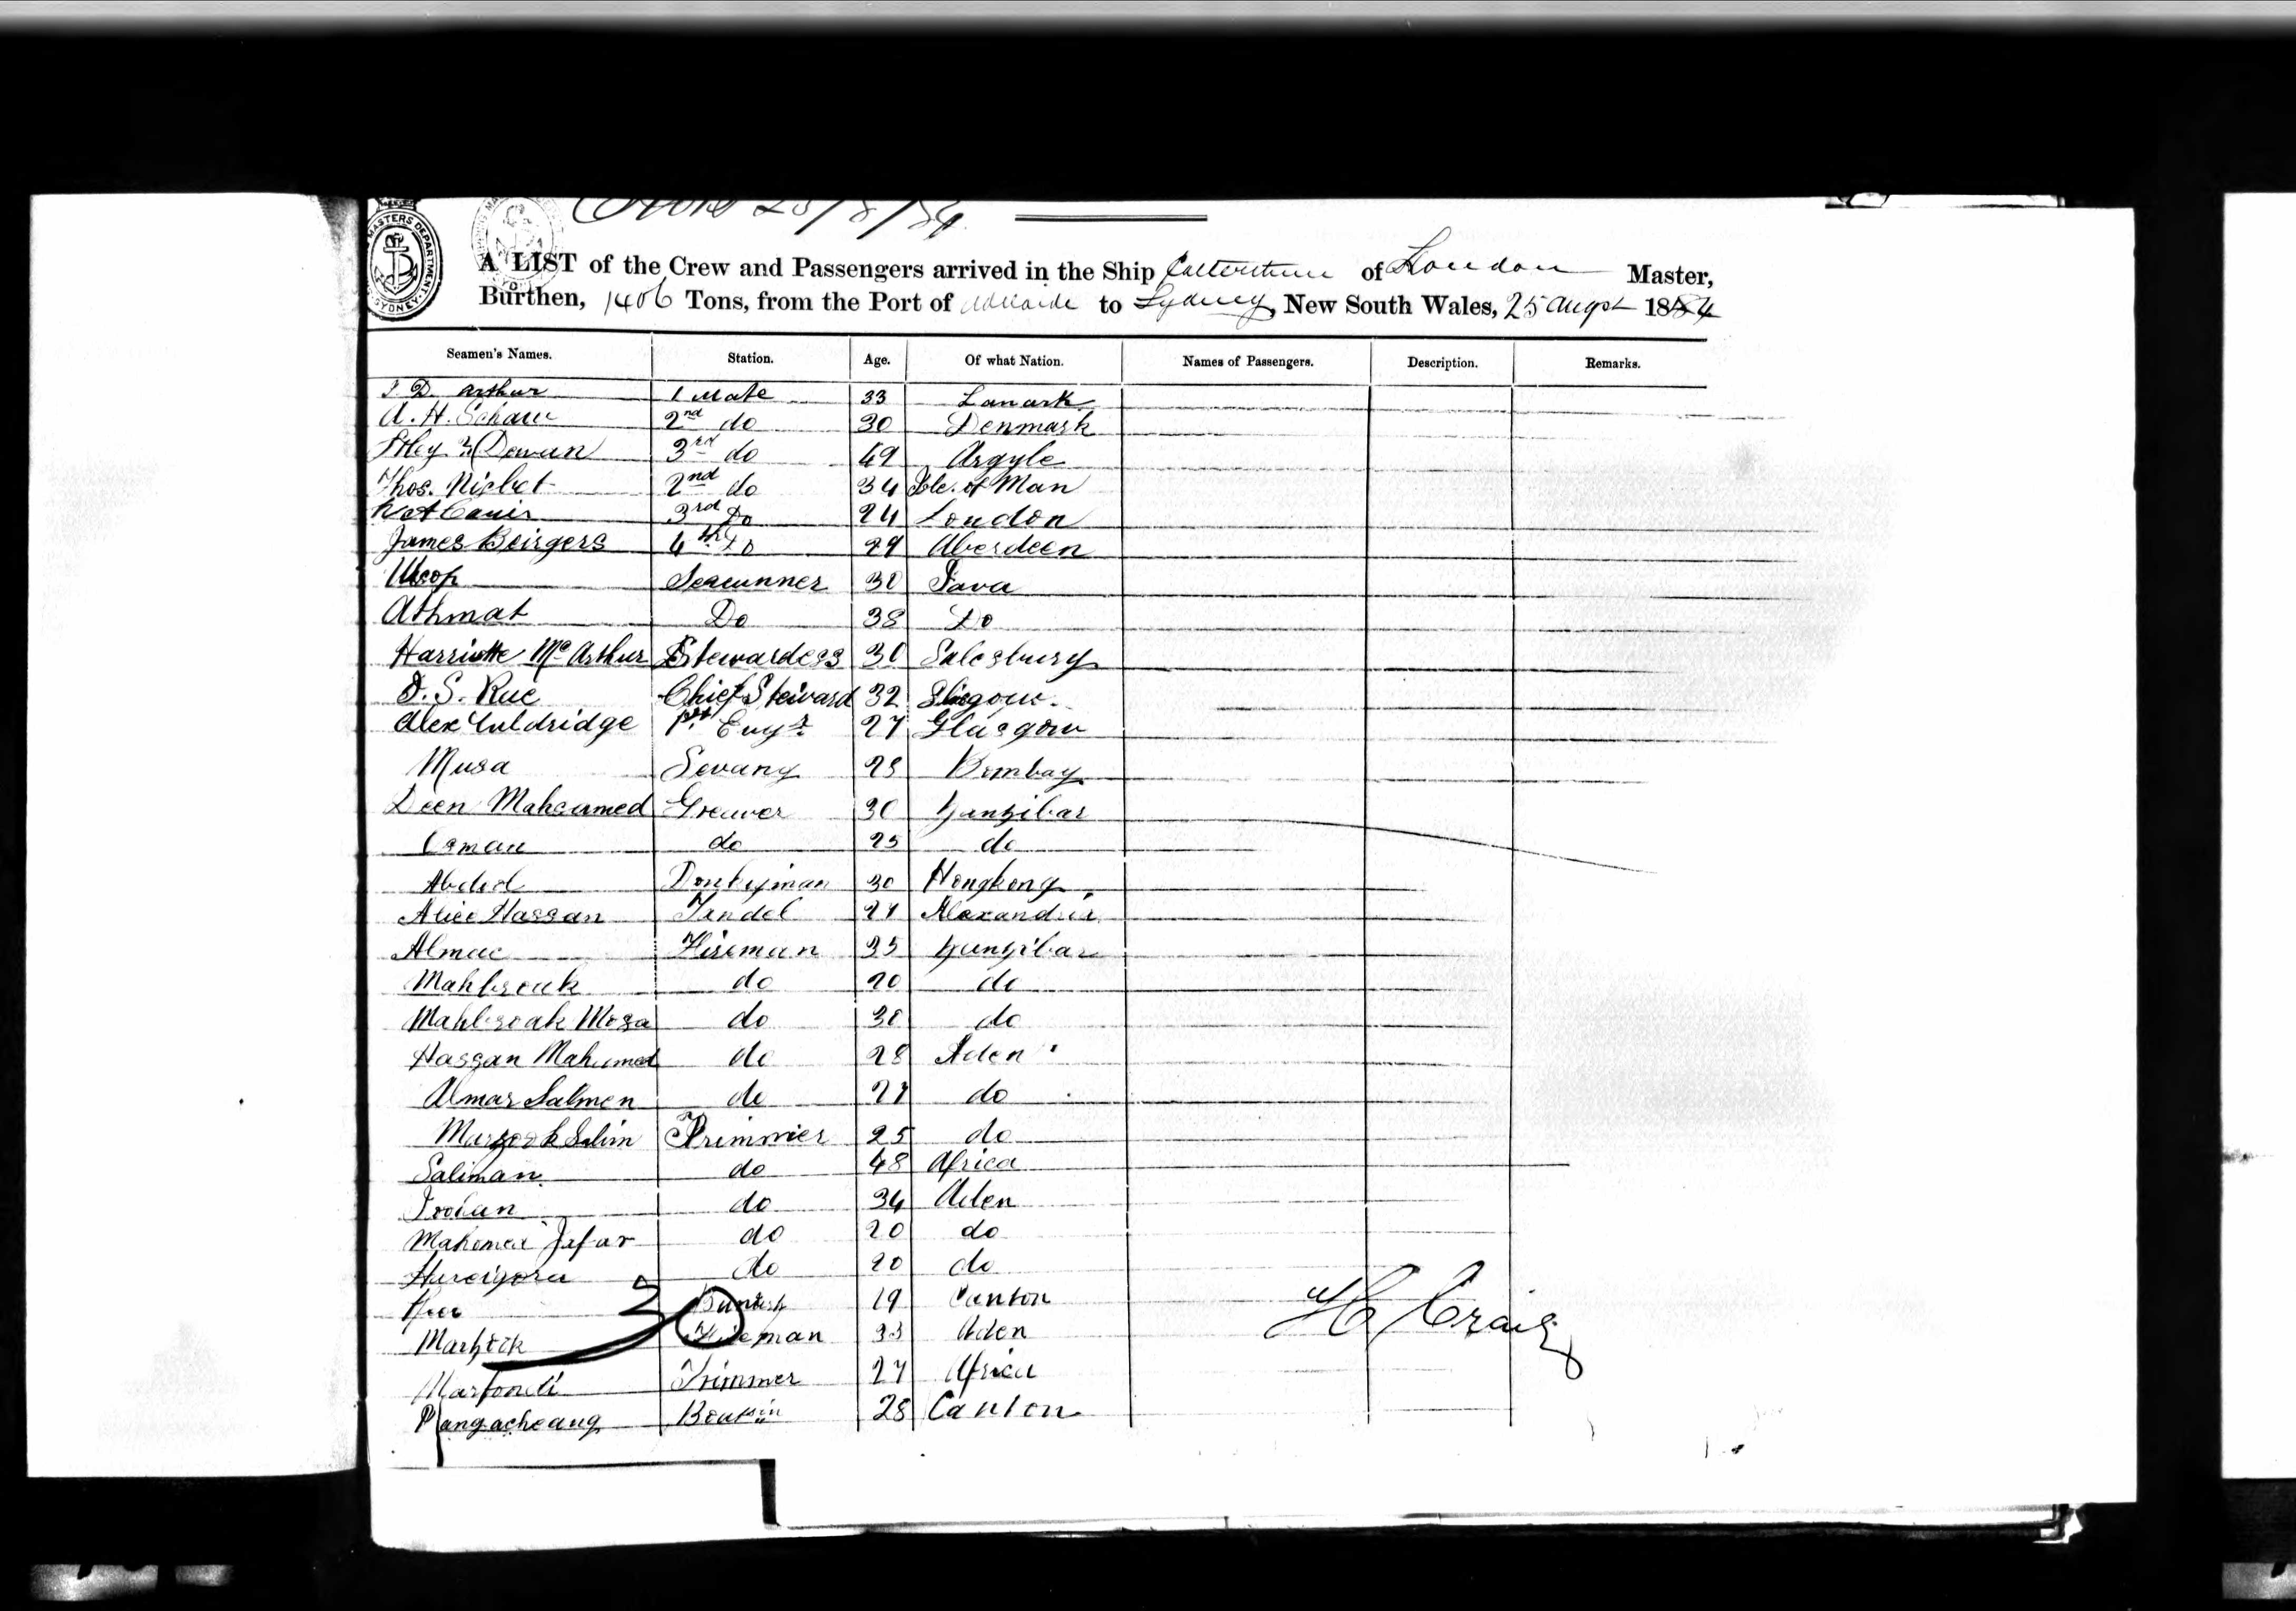 MASTERS DEPARTMENT
SYDNEY
25/8/84
A LIST of the Crew and Passengers arrived in the Ship of London Master,
Burthen, 1406 Tons, from the Port of Adelaide to Sydney, New South Wales, 25 Augst 1884
Seamen's Names. Station. Age. Of what Nation. Names of Passengers. Description. Remarks.
D. Arthur 1 Mate 33 Lanark
A. H. Schaw 2nd do 30 Denmark
3rd do 49 Argyle
Thos. Nisbet 2nd do 34 Isle of Man
3rd Do 24 London
James Beirgers 4th Do 29 Aberdeen
Usop Seacunner 30 Java
Athmat Do 38 Do
Harriette McArthur Stewardess 30 Salesbury
S. Rue Chief Steward 32
Alex Guldridge 1st Engr 27 Glasgow
Musa Serang 28 Bombay
Deen Mahaumed Greaver 30 Zanzibar
Osman do 25 do
Abdul Donkeyman 30 Hongkong
Alice Hassan Tindel 27 Alexandria
Almac Fireman 35 Zanzibar
Mahbrouk do 20 do
Mahbroak Mosa do 30 do
Hassan Mahumed do 28 Aden
Almar Salmen do 27 do
Marzook Salim Trimmer 25 do
Saliman do 48 Africa
do 34 Aden
Mahomed Jafar do 20 do
do 20 do
19 Canton
30
Fireman 33 Aden
Trimmer 27 Africa
28 Canton
H Craig